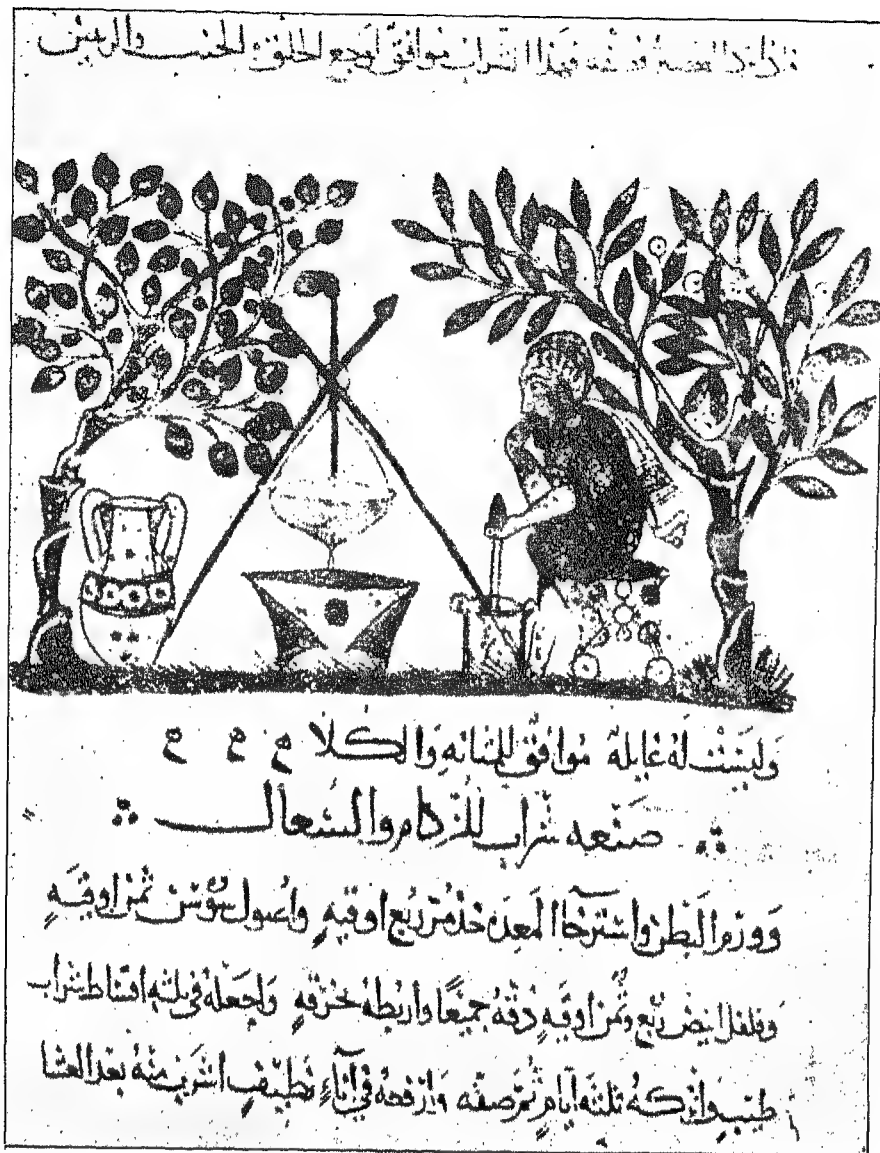 فهذا الشراب موافق لوجع الحلق والجنب والرئتين
وليست له غايله موافق للمثانه والكلا ح ح ح
صنعه شراب للزكام والسعال
وورم البطن واسترخا المعده خذ مرّ ربع اوقيه واصول سوسن ثمن اوقيه
وفلفل ابيض ربع وثمن اوقيه دقه جميعًا واربطه بخرقه واجعله في ثلثه اقساط شراب
طيب واتركه ثلثه ايام ثمّ صفّه وارفعه في اناءٍ نظيفٍ اشربن منه بعد العشا